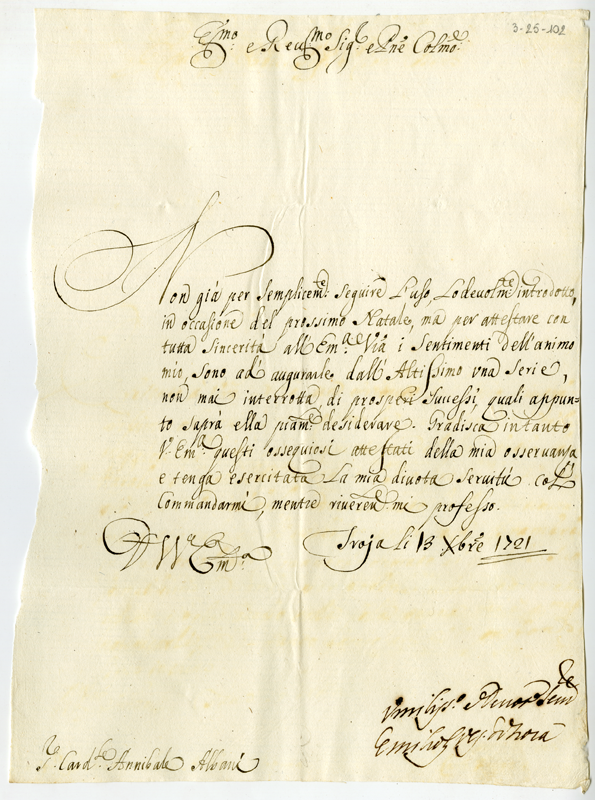 3-25-102
Em̃o e Reu.mo Sig.r e Pne Colmo
Non già per semplicem.e seguire l'uso Lodevolm.e introdotto,
in occasione del prossimo Natale, ma per attestare con
tutta sincerità all'Em.a V̄ra i sentimenti dell'animo
mio, sono ad' augurarle dall'Altissimo vna serie,
non mai interrotta di prosperi Successi quali appun=
to saprà ella piam.e desiderare. Gradisca intanto
V.a Em.a questi ossequiosi attestati della mia osservanza
e tenga esercitata La mia divota servitù col
Commandarmi, mentre riverend.e mi professo.
D V.ra Em.a
Troja li 13 Xbre 1721
Vmiliss.o Deuot.
Emilio Vesc.o di Troia
S. Card.le Annibale Albani